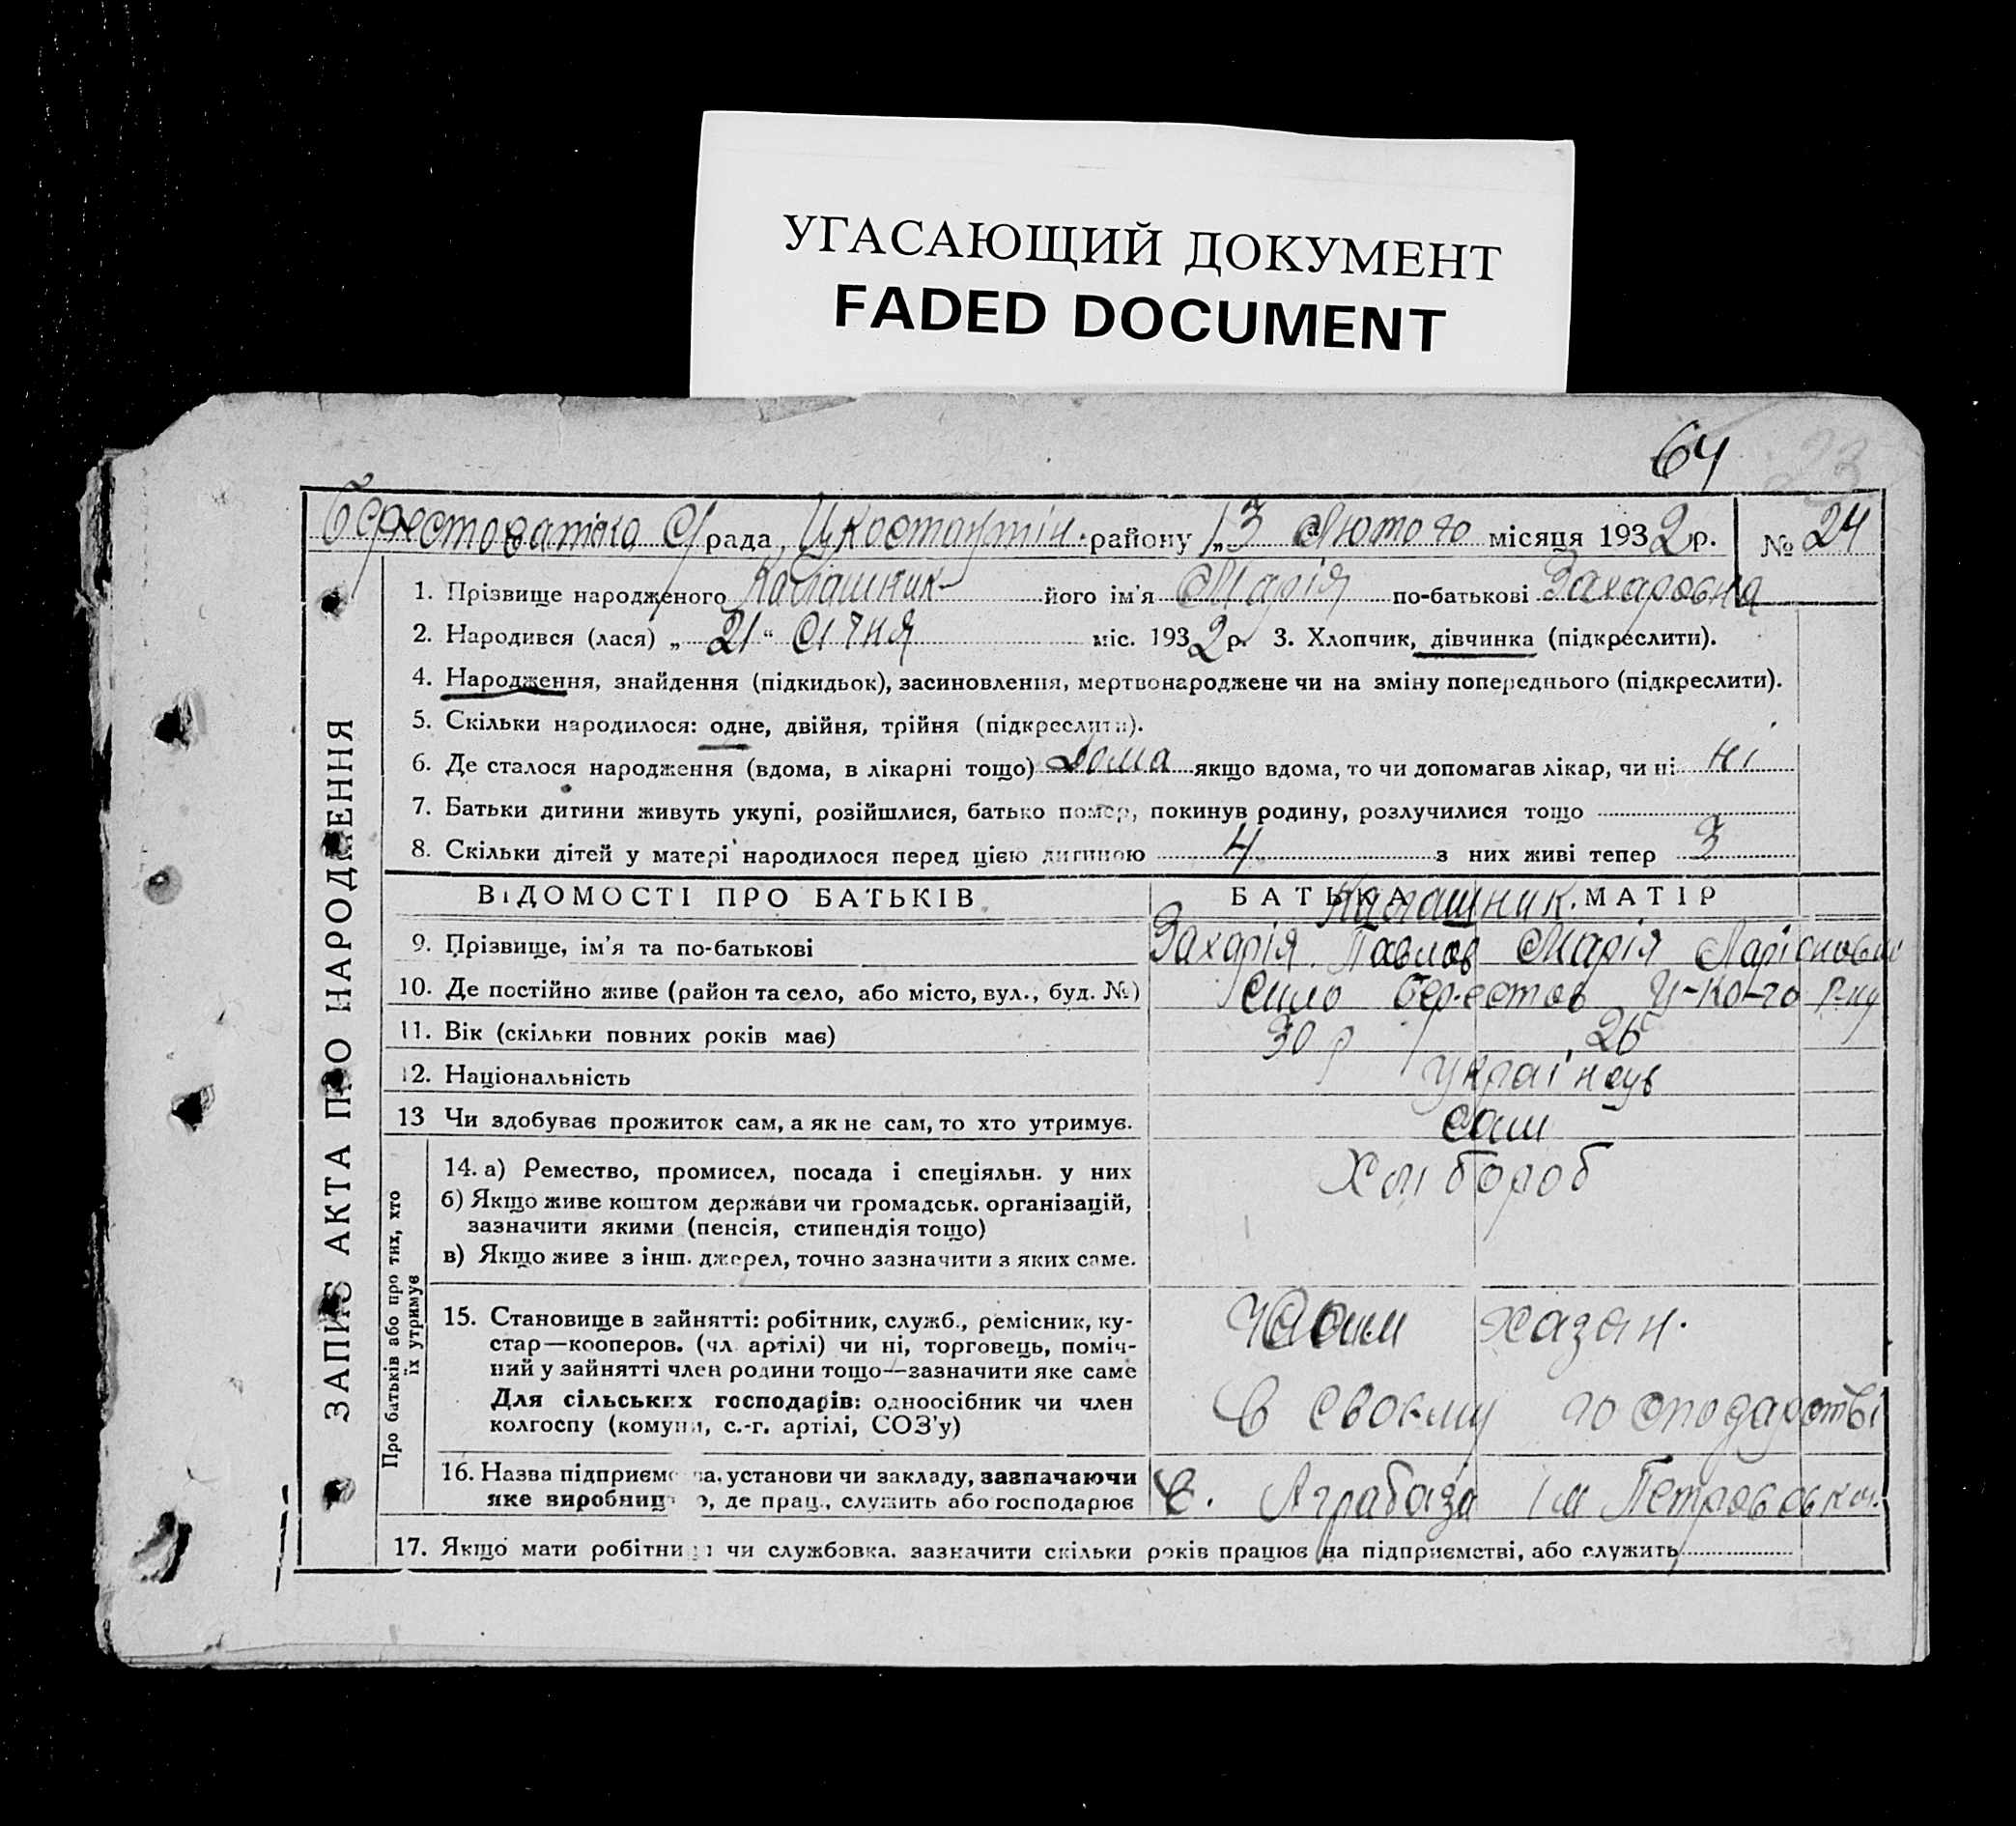 УГАСАЮЩИЙ ДОКУМЕНТ
FADED DOCUMENT
64
23
Берестоватська С/рада, Цукостантін. району „3 Лютого місяця 1932 р. № 24
1. Прізвище народженого Калашник його ім'я Марія по-батькові Захаровна
2. Народився (лася) „21" Січня міс. 1932 р. 3. Хлопчик, дівчинка (підкреслити).
4. Народження, знайдення (підкидьок), засиновлення, мертвонароджене чи на зміну попереднього (підкреслити).
5. Скільки народилося: одне, двійня, трійня (підкреслити).
6. Де сталося народження (вдома, в лікарні тощо) Дома якщо вдома, то чи допомагав лікар, чи ні ні
7. Батьки дитини живуть укупі, розійшлися, батько помер, покинув родину, розлучилися тощо
8. Скільки дітей у матері народилося перед цією дитиною 4 з них живі тепер 3
ВІДОМОСТІ ПРО БАТЬКІВ БАТЬКА МАТІР
Калашник.
9. Прізвище, ім'я та по-батькові Захарія Павлов Марія Ларіновні
10. Де постійно живе (район та село, або місто, вул., буд. №) Село Берестов Ц-Ко-го Р-ну
11. Вік (скільки повних років має) 30 р 26
12. Національність Українсув
13 Чи здобуває прожиток сам, а як не сам, то хто утримує. Сам
Про батьків або про тих, хто їх утримує
14. а) Ремество, промисел, посада і спеціяльн. у них Хлібороб
б) Якщо живе коштом держави чи громадськ. організацій,
зазначити якими (пенсія, стипендія тощо)
в) Якщо живе з інш. джерел, точно зазначити з яких саме.
15. Становище в зайнятті: робітник, служб., ремісник, ку-
стар—кооперов. (чл. артілі) чи ні, торговець, поміч-
ний у зайнятті член родини тощо—зазначити яке саме
Для сільських господарів: одноосібник чи член
колгоспу (комуни, с.-г. артілі, СОЗ'у)
хазян.
В своєму господарстві
16. Назва підприємства, установи чи закладу, зазначаючи
яке виробництво, де прац., служить або господарює
С. Аграбаза ім Петровськ
17. Якщо мати робітниця чи службовка, зазначити скільки років працює на підприємстві, або служить
ЗАПИС АКТА ПРО НАРОДЖЕННЯ